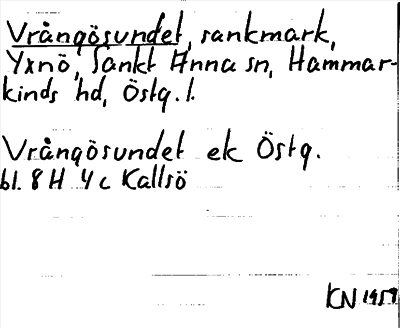 Vrångösundet, sankmark,
Yxnö, Sankt Anna sn, Hammar-
kinds hd, Östg. l.
Vrångösundet ek Östg.
bl. 8 H 4 c Kallsö
KN 1959